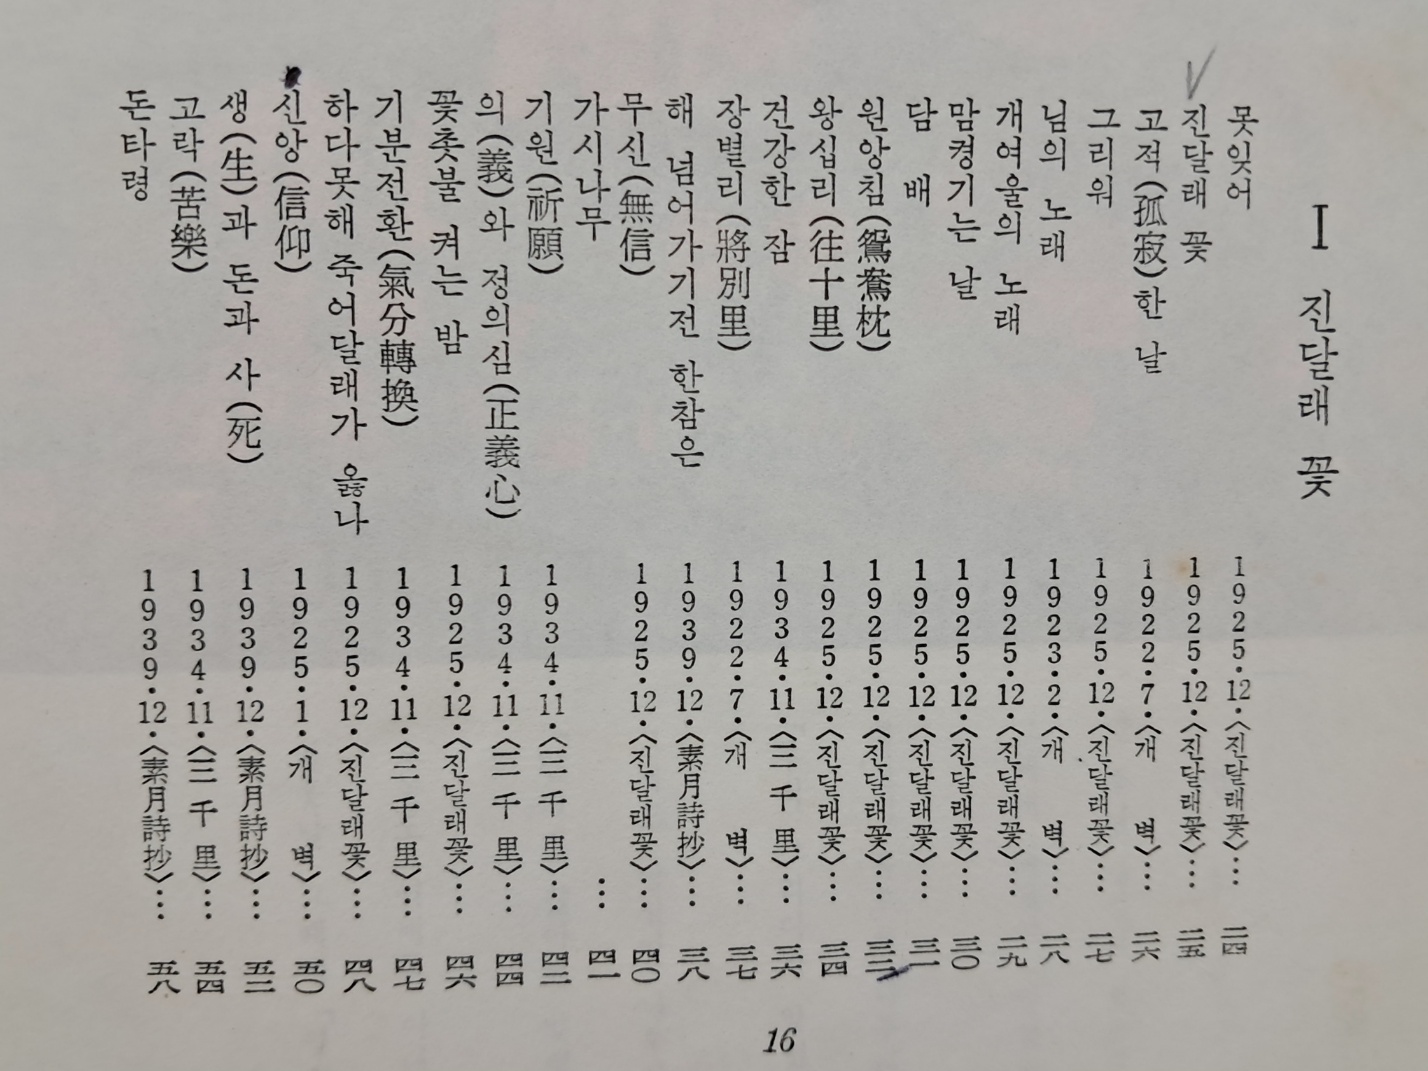 I 진달래 꽃
못잊어 1925·12·〈진달래꽃〉… 二四
진달래 꽃 1925·12·〈진달래꽃〉… 二五
고적(孤寂)한 날 1922·7·〈개 벽〉… 二六
그리워 1925·12·〈진달래꽃〉… 二七
님의 노래 1923·2·〈개 벽〉… 二八
개여울의 노래 1925·12·〈진달래꽃〉… 二九
맘켱기는 날 1925·12·〈진달래꽃〉… 三〇
담 배 1925·12·〈진달래꽃〉… 三一
원앙침(鴛鴦枕) 1925·12·〈진달래꽃〉… 三二
왕십리(往十里) 1925·12·〈진달래꽃〉… 三四
건강한 잠 1934·11·〈三千里〉… 三六
장별리(將別里) 1922·7·〈개 벽〉… 三七
해 넘어가기전 한참은 1939·12·〈素月詩抄〉… 三八
무신(無信) 1925·12·〈진달래꽃〉… 四〇
가시나무 … 四一
기원(祈願) 1934·11·〈三千里〉… 四二
의(義)와 정의심(正義心) 1934·11·〈三千里〉… 四四
꽃촛불 켜는 밤 1925·12·〈진달래꽃〉… 四六
기분전환(氣分轉換) 1934·11·〈三千里〉… 四七
하다못해 죽어달래가 옳나 1925·12·〈진달래꽃〉… 四八
신앙(信仰) 1925·1·〈개 벽〉… 五〇
생(生)과 돈과 사(死) 1939·12·〈素月詩抄〉… 五二
고락(苦樂) 1934·11·〈三千里〉… 五四
돈타령 1939·12·〈素月詩抄〉… 五八
16